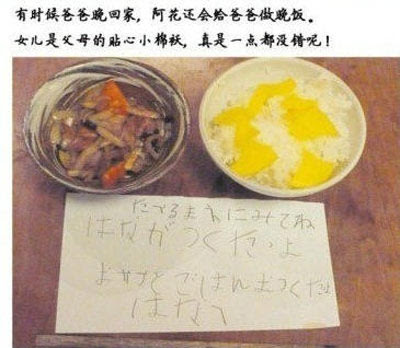 有时候爸爸晚回家，阿花还会给爸爸做晚饭。
女儿是父母的贴心小棉袄，真是一点都没错呢！
たべるまえにみてね
はながつくたよ
ごはん
はな